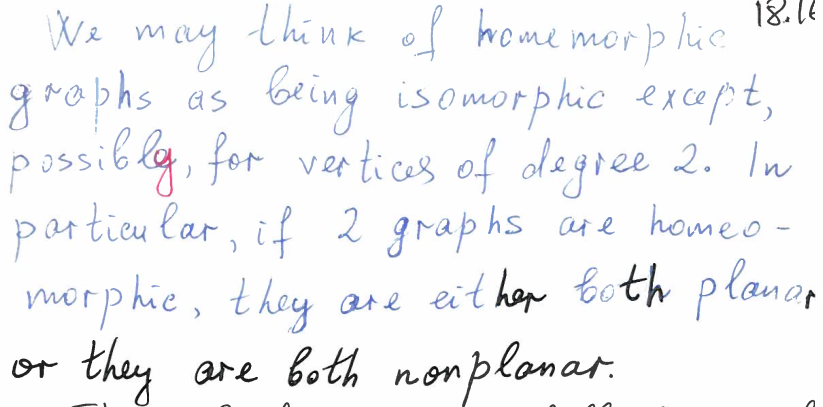 18.16
We may think of homemorphic
graphs as being isomorphic except,
possibly, for vertices of degree 2. In
particular, if 2 graphs are homeo-
morphic, they are either both planar
or they are both nonplanar.